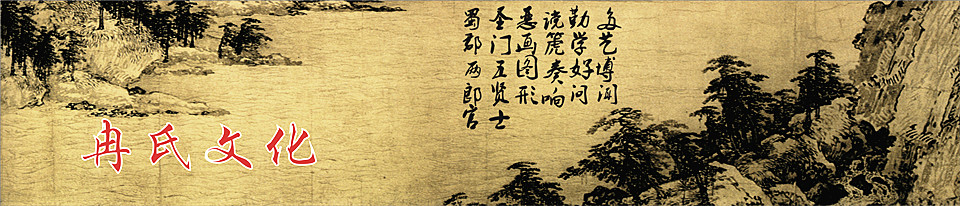 多艺博闻
勤学好问
奏响
画图形
圣门五贤士
蜀郡两郎官
冉氏文化